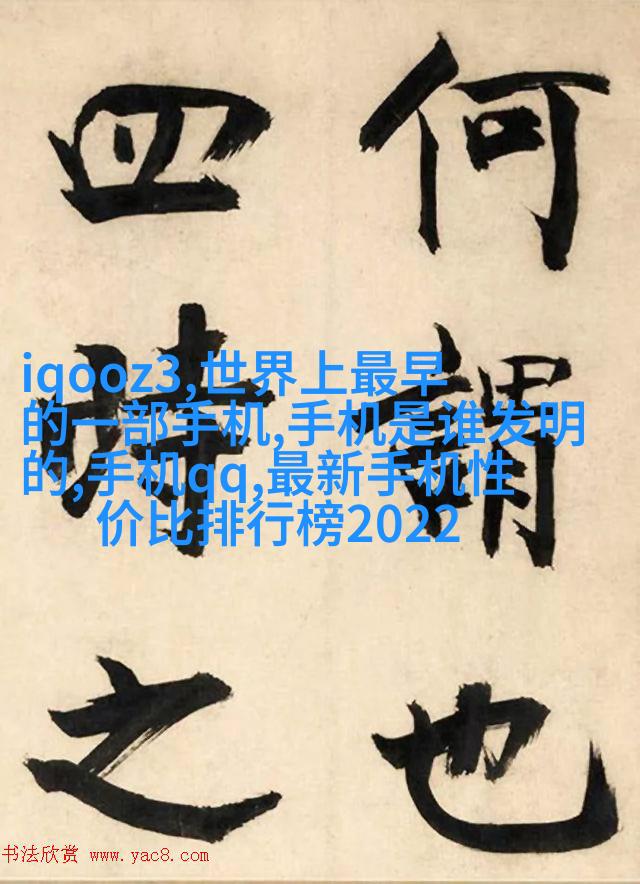 何謂也
四時之
iqooz3,世界上最早
的一部手机,手机是谁发明
的,手机qq,最新手机性
价比排行榜2022
书法欣赏 www.yac8.com